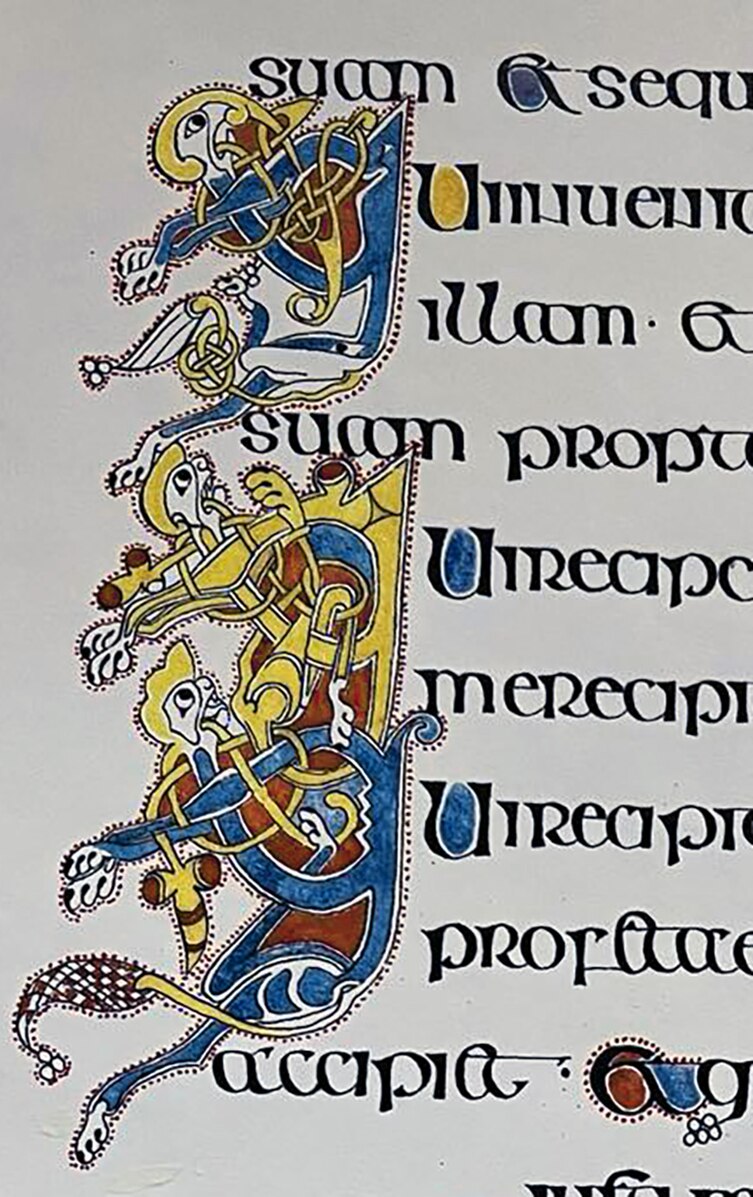 suam et sequ
Qui inuenit
illam · et
suam propt
Qui recipe
me recipi
Qui recipit
profetae
accipiet : et g